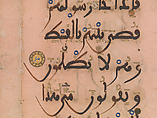 فإذا جاء رسولهم
قضي بينهم بالقسط
وهم لا يظلمون
ويقولون متى هذا